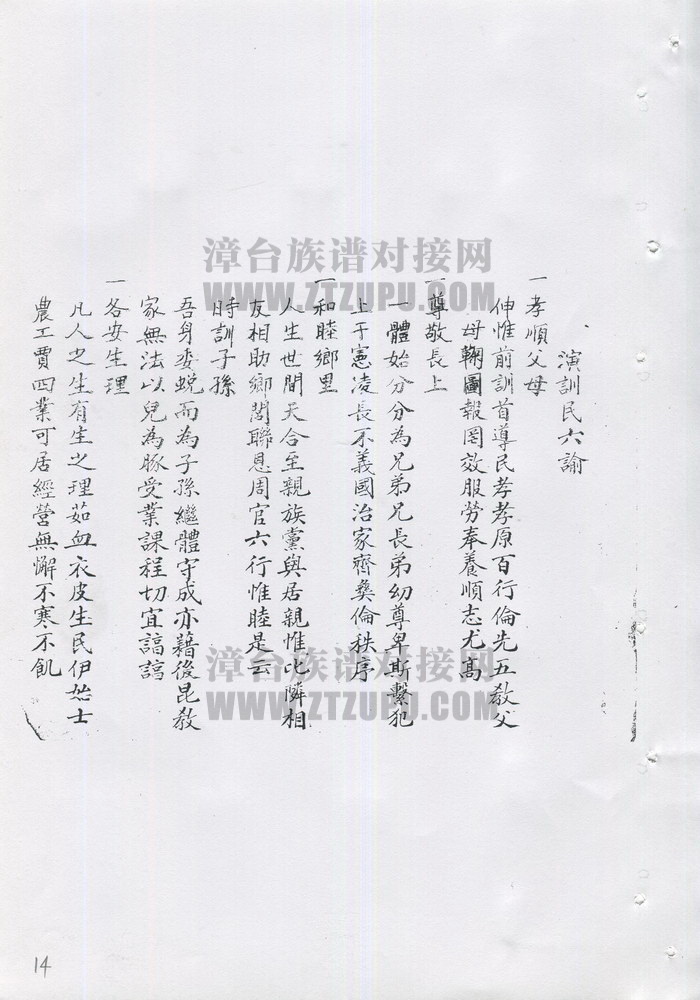 演訓民六諭
一孝順父母
伸惟前訓首導民孝孝原百行倫先五教父
母鞠圖報罔效服勞奉養順志尤高
一尊敬長上
一體始分分為兄弟兄長弟幼尊卑斯繫犯
上于憲凌長不義國治家齊彝倫秩序
一和睦鄉里
人生世間天合至親族黨與居親惟比隣相
友相助鄉閭聯恩周官六行惟睦是云
時訓子孫
吾身委蛻而為子孫繼體守成亦藉後昆教
家無法以兒為豚受業課程切宜諄諄
一各安生理
凡人之生有生之理茹血衣皮生民伊始士
農工賈四業可居經營無懈不寒不飢
漳台族谱对接网
WWW.ZTZUPU.COM
漳台族谱对接网
WWW.ZTZUPU.COM
14